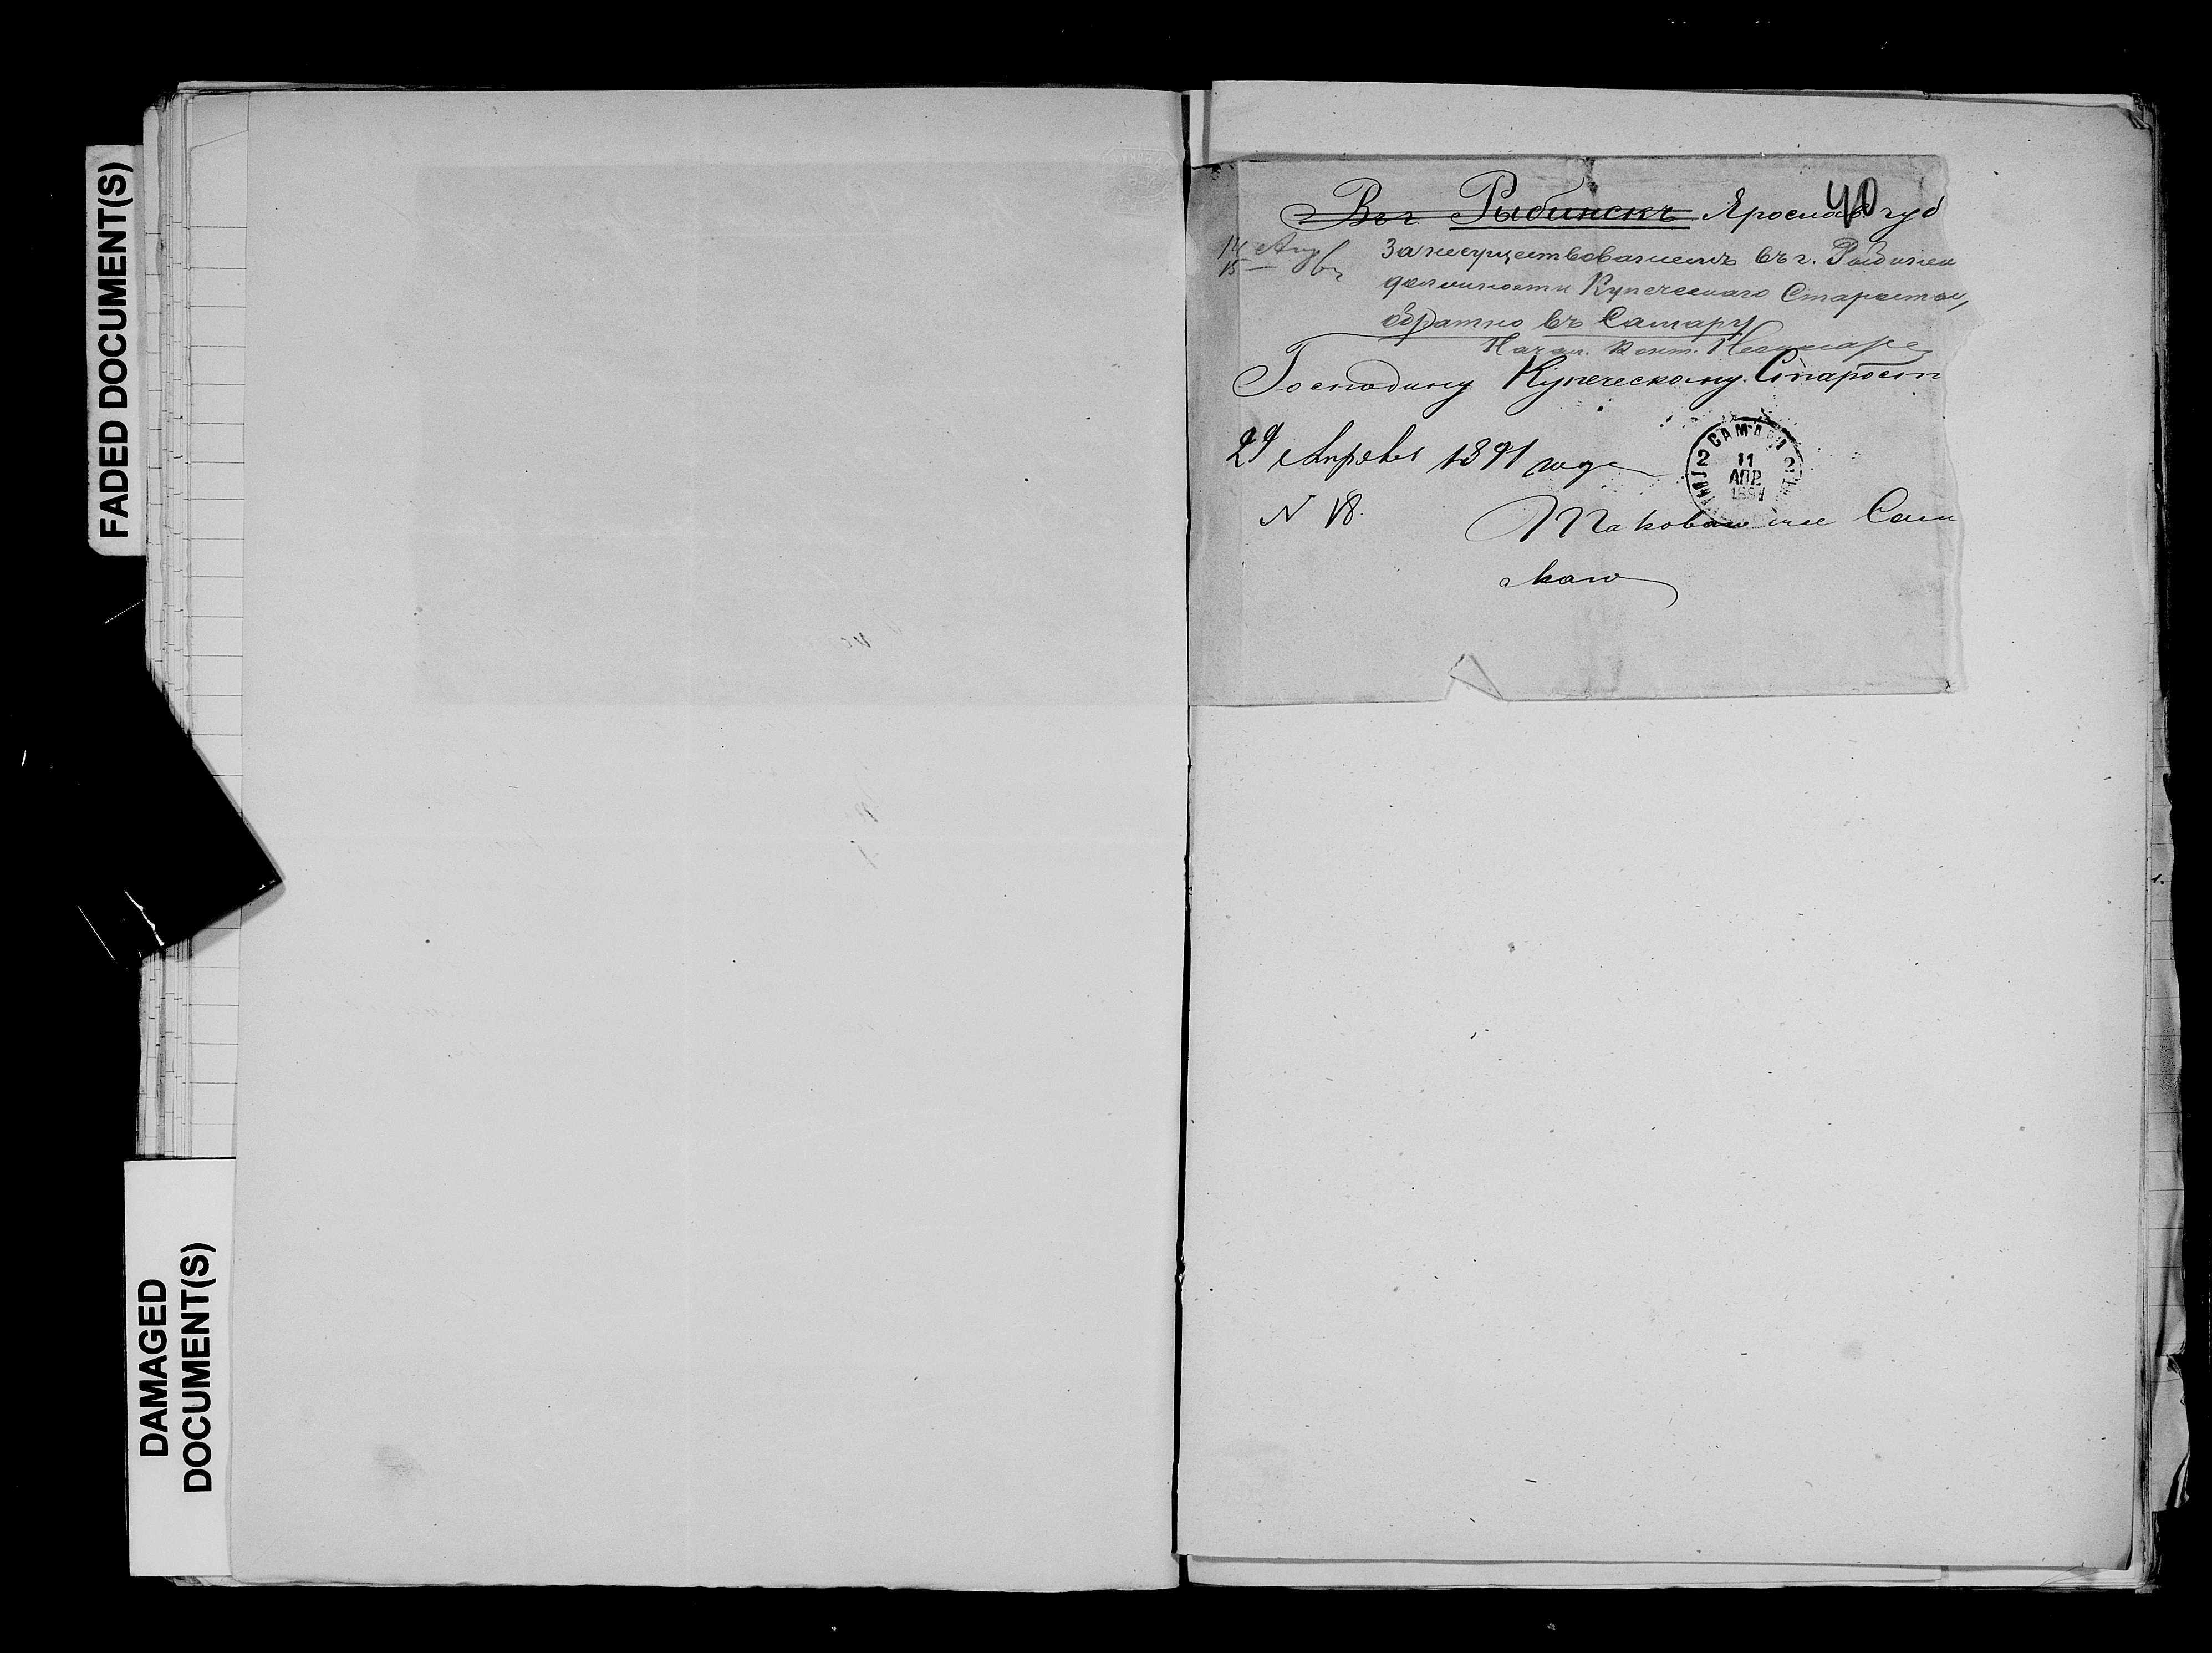 FADED DOCUMENT(S)
DAMAGED
DOCUMENT(S)
40
Въ г Рыбинскъ Ярослав. губ
14
15
За несуществованіемъ въ г. Рыбинск
должности Купеческаго Старосты,
обратно въ Самару
Начал. Конт.
Господину Купеческому Старост
29 Апреля 1891 года
САМАРА
2 11 2
АПР.
1891
N 18.
Таковаго же Сам
скаго